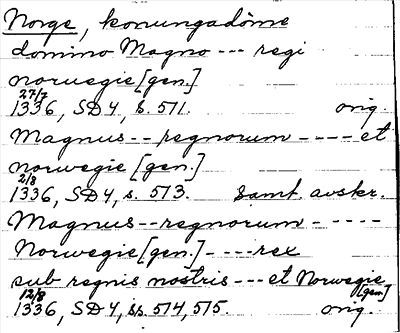 Norge, konungadöme
domino Magno --- regi
noruegie [gen.]
27/7
1336, SD 4, s. 511. orig.
Magnus -- regnorum ---- et
norwegie [gen.]
2/8
1336, SD 4, s. 513. Samt. avskr.
Magnus -- regnorum -----
Norwegie [gen.] ---- rex
sub regnis nostris --- et Norwegie
[gen.]
12/8
1336, SD 4, ss. 514, 515. orig.